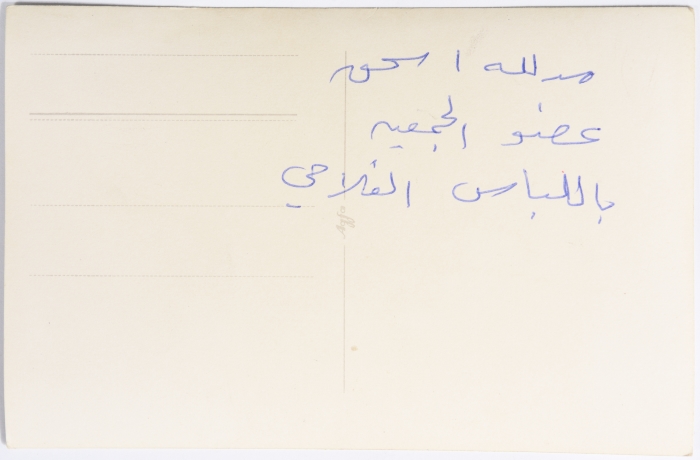 مدلله اسحق
عضو الجمعيه
باللباس الفلاحي